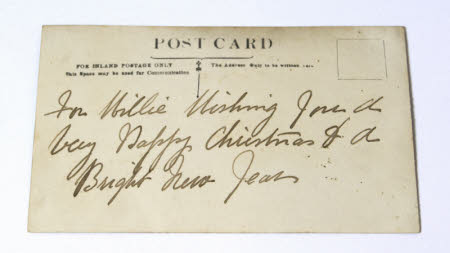 POST CARD
FOR INLAND POSTAGE ONLY
This Space may be used for Communication
The Address Only to be written
For Willie Wishing You a
Very Happy Christmas & a
Bright New Year